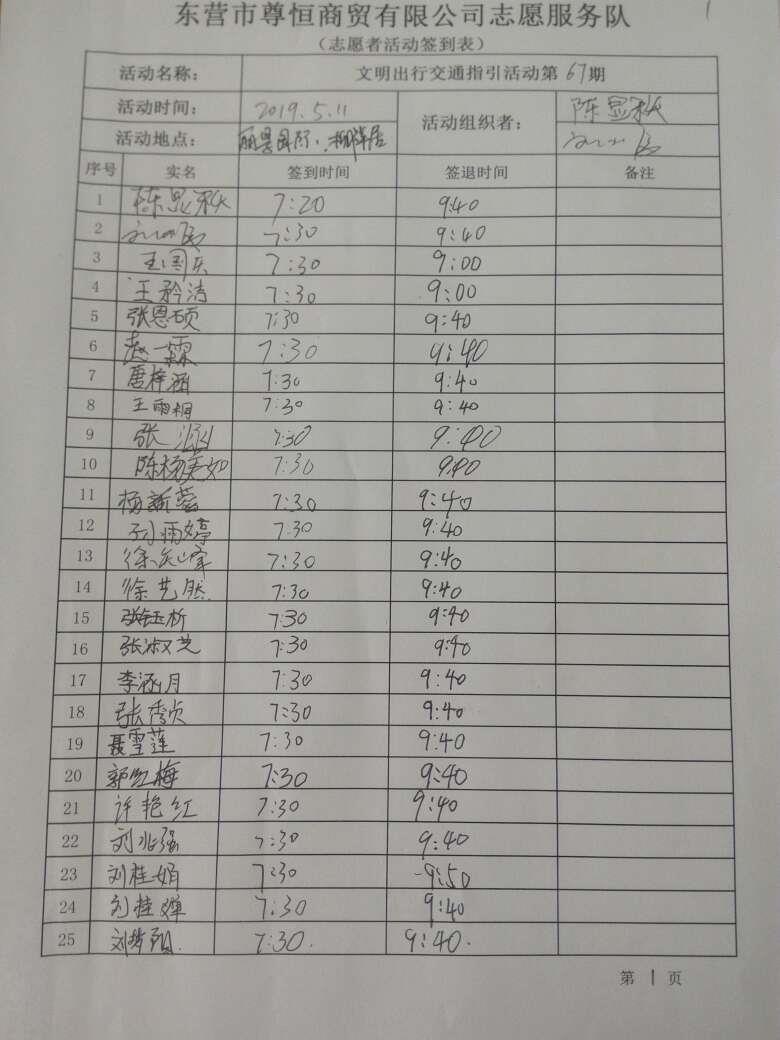 东营市尊恒商贸有限公司志愿服务队
(志愿者活动签到表)
活动名称: 文明出行交通指引活动第67期
活动时间: 2019.5.11 活动组织者: 陈显秋
活动地点:
序号 实名 签到时间 签退时间 备注
1 陈显秋 7:20 9:40
2 7:30 9:40
3 王国兵 7:30 9:00
4 王矜涛 7:30 9:00
5 张恩硕 7:30 9:40
6 赵一霖 7:30 9:40
7 唐梓涵 7:30 9:40
8 王雨桐 7:30 9:40
9 张 7:30 9:40
10 陈杨美如 7:30 9:40
11 杨新蕊 7:30 9:40
12 孙雨婷 7:30 9:40
13 徐 峰 7:30 9:40
14 徐艺然 7:30 9:40
15 张钰析 7:30 9:40
16 张淑芝 7:30 9:40
17 李涵月 7:30 9:40
18 张秀贞 7:30 9:40
19 聂雪莲 7:30 9:40
20 郭红梅 7:30 9:40
21 许艳红 7:30 9:40
22 刘兆强 7:30 9:40
23 刘桂娟 7:30 9:50
24 刘桂婵 7:30 9:40
25 刘 7:30. 9:40.
第1页